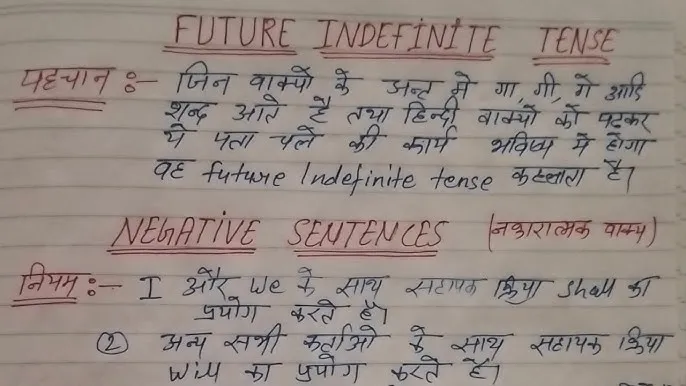 FUTURE INDEFINITE TENSE
पहचान :- जिन वाक्यों के अन्त मे गा, गी, गे आदि
शब्द आते है तथा हिन्दी वाक्यों को पढ़कर
ये पता चले की कार्य भविष्य मे होगा
वह future Indefinite tense कहलाता है।
NEGATIVE SENTENCES (नकारात्मक वाक्य)
नियम :- I और We के साथ सहायक क्रिया shall का
प्रयोग करते है।
② अन्य सभी कर्ताओ के साथ सहायक क्रिया
Will का प्रयोग करते है।